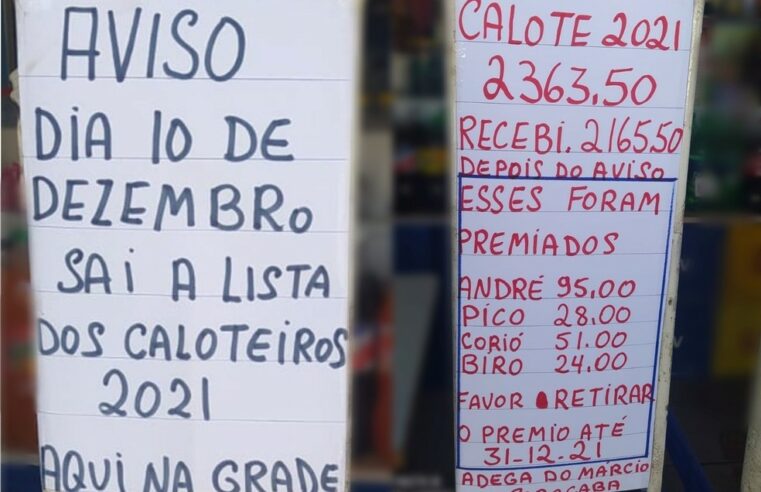 AVISO
DIA 10 DE
DEZEMBRO
SAI A LISTA
DOS CALOTEIROS
2021
AQUI NA GRADE
CALOTE 2021
2363.50
RECEBI. 2165.50
DEPOIS DO AVISO
ESSES FORAM
PREMIADOS
ANDRÉ 95.00
PICO 28.00
CORIÓ 51.00
BIRO 24.00
FAVOR RETIRAR
O PREMIO ATÉ
31-12-21
ADEGA DO MARCIO